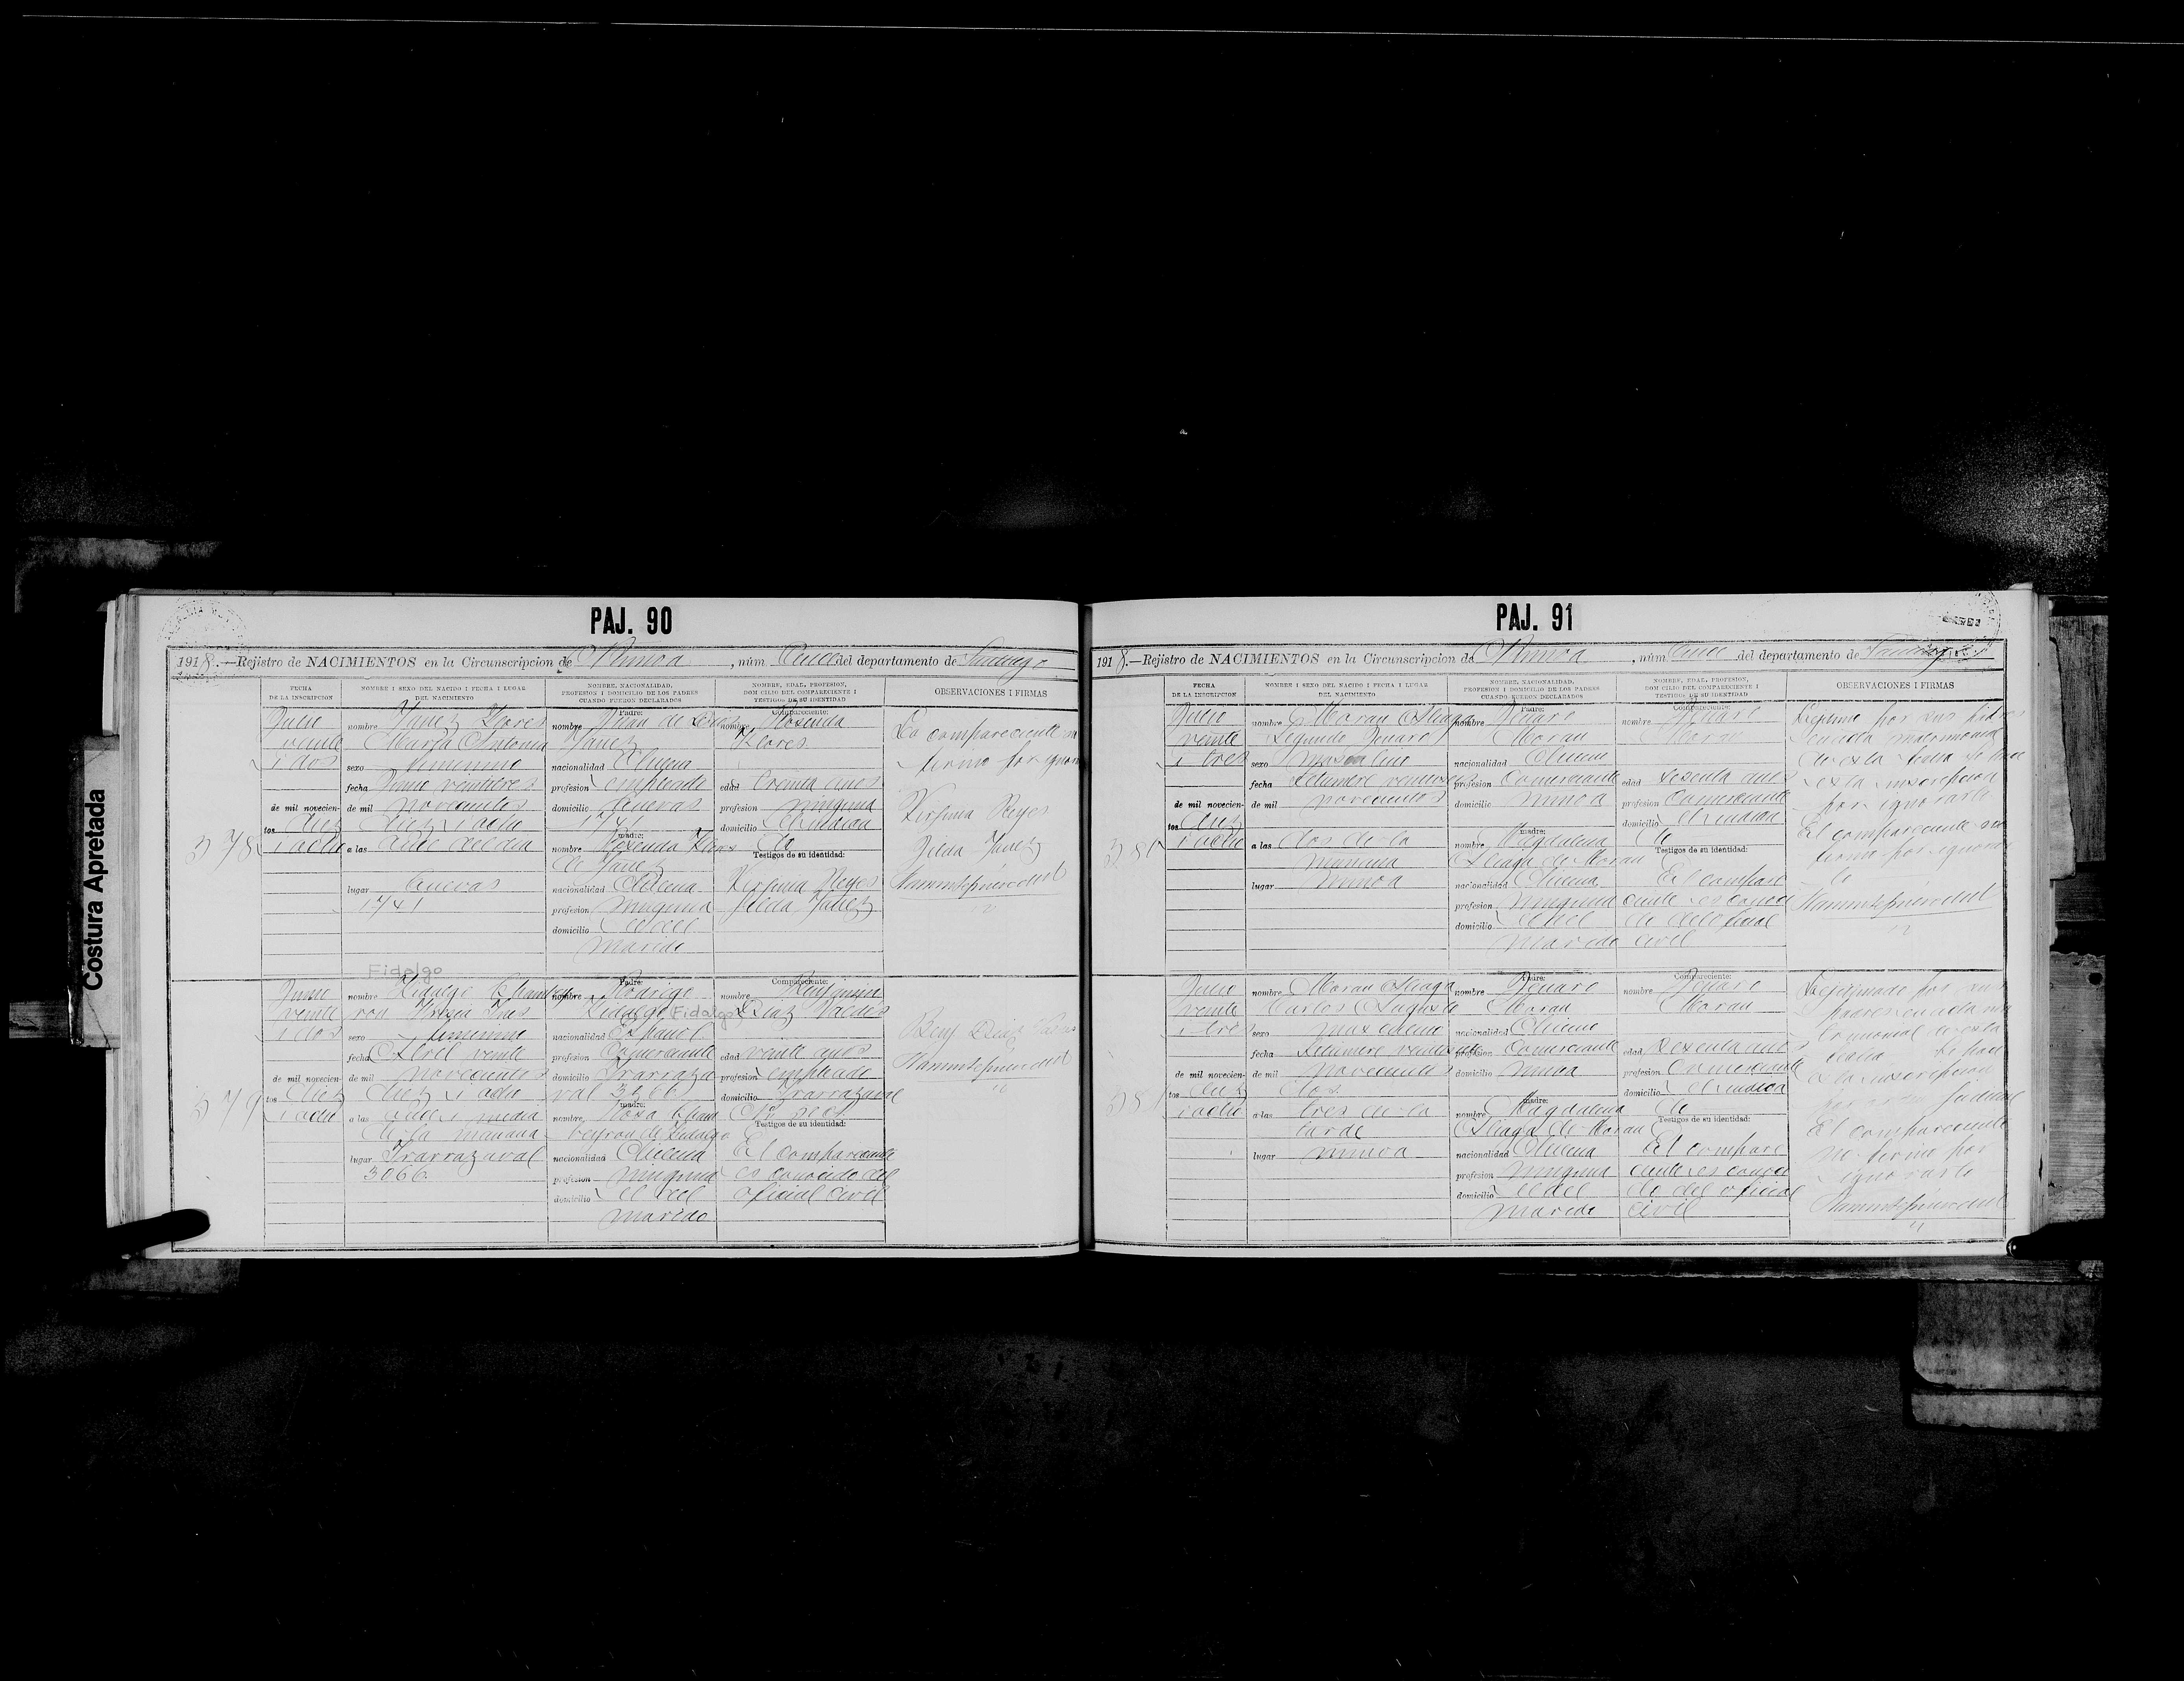 Costura Apretada
PAJ. 90
1918.—Rejistro de NACIMIENTOS en la Circunscripcion de Nunoa, núm Once del departamento de Santiago
FECHA DE LA INSCRIPCION
NOMBRE I SEXO DEL NACIDO I FECHA I LUGAR DEL NACIMIENTO
NOMBRE, NACIONALIDAD, PROFESION I DOMICILIO DE LOS PADRES CUANDO FUEREN DECLARADOS
NOMBRE, EDAD, PROFESION, DOMICILIO DEL COMPARECIENTE I TESTIGOS DE SU IDENTIDAD
OBSERVACIONES I FIRMAS
378
Julio
veinte
i dos
de mil novecien-
tos Diez
i ocho
nombre Yañez Flores
Marta Antonia
sexo femenino
fecha Junio veintitres
de mil novecientos
diez i ocho
a las doce del dia
lugar Cuevas
1741
Padre:
nombre Juan de Dios
Yañez
nacionalidad Chilena
profesion empleado
domicilio Cuevas
1741
madre:
nombre Rosenda Flores
de Yañez
nacionalidad Chilena
profesion ninguna
domicilio el del
marido
Compareciente:
nombre Rosenda
Flores
edad treinta años
profesion ninguna
domicilio el indica
do
Testigos de su identidad:
Virjinia Reyes
Yañez
La compareciente no
firmo por ignorar
Virjinia Reyes
Yañez
379
veinte
i dos
de mil novecien-
tos Diez
i ocho
Fidelgo
nombre Hidalgo
Ines
sexo femenino
fecha Abril veinte
de mil novecientos
diez i ocho
a las once i media
de la mañana
lugar Irarrazaval
3066
Padre:
nombre Rodrigo
Hidalgo Fidalgo
nacionalidad Español
profesion Comerciante
domicilio Irarraza
val 3066
madre:
nombre Rosa
de Hidalgo
nacionalidad Chilena
profesion ninguna
domicilio el del
marido
Compareciente:
nombre Benjamin
Diaz Valdes
edad veinte años
profesion empleado
domicilio Irarrazaval
Testigos de su identidad:
El compareciente
es conocido del
oficial civil
Benj Diaz Valdes
PAJ. 91
1918.—Rejistro de NACIMIENTOS en la Circunscripcion de Nunoa, núm Once del departamento de Santiago
FECHA DE LA INSCRIPCION
NOMBRE I SEXO DEL NACIDO I FECHA I LUGAR DEL NACIMIENTO
NOMBRE, NACIONALIDAD, PROFESION I DOMICILIO DE LOS PADRES CUANDO FUEREN DECLARADOS
NOMBRE, EDAD, PROFESION, DOMICILIO DEL COMPARECIENTE I TESTIGOS DE SU IDENTIDAD
OBSERVACIONES I FIRMAS
Julio
veinte
i tres
de mil novecien-
tos Diez
i ocho
nombre Moran Aliaga
Segundo Jenaro
sexo masculino
fecha Setiembre
de mil novecientos
a las dos de la
mañana
lugar Nunoa
Padre:
nombre Jenaro
Moran
nacionalidad Chileno
profesion Comerciante
domicilio Nunoa
madre:
nombre Magdalena
Aliaga de Moran
nacionalidad Chilena
profesion ninguna
domicilio el del
marido
Compareciente:
nombre Jenaro
Moran
edad sesenta años
profesion Comerciante
domicilio el indica
do
Testigos de su identidad:
El compare
ciente es conoci
do del oficial
civil
por sus padres
matrimonio
esta fecha se hace
esta inscripcion
por ignorarlo
El compareciente no
firmo por ignorar
lo
381
Julio
veinte
i tres
de mil novecien-
tos Diez
i ocho
nombre Moran Aliaga
Carlos Augusto
sexo masculino
fecha Setiembre
de mil novecientos
dos
a las tres de la
tarde
lugar Nunoa
Padre:
nombre Jenaro
Moran
nacionalidad Chileno
profesion Comerciante
domicilio Nunoa
madre:
nombre Magdalena
Aliaga de Moran
nacionalidad Chilena
profesion ninguna
domicilio el del
marido
Compareciente:
nombre Jenaro
Moran
edad sesenta años
profesion Comerciante
domicilio el indica
do
Testigos de su identidad:
El compare
ciente es conoci
do del oficial
civil
Lejitimado por sus
padres
fecha se hace
esta inscripcion
por orden judicial
El compareciente
no firmo por
ignorarlo